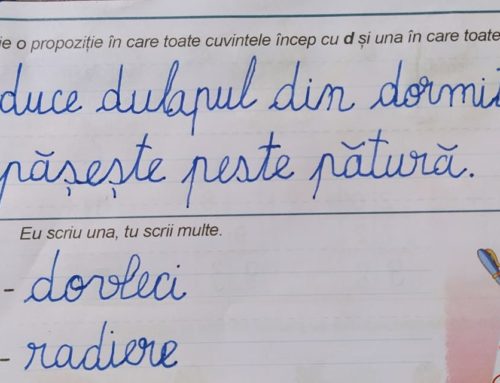 ie o propoziție în care toate cuvintele încep cu d și una în care toate
duce dulapul din dormit
pășește peste pătură.
Eu scriu una, tu scrii multe.
- dovleci
- radiere